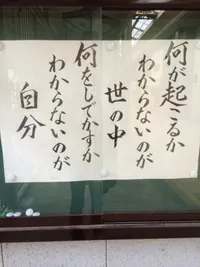 何が起こるか
わからないのが
世の中
何をしでかすか
わからないのが
自分